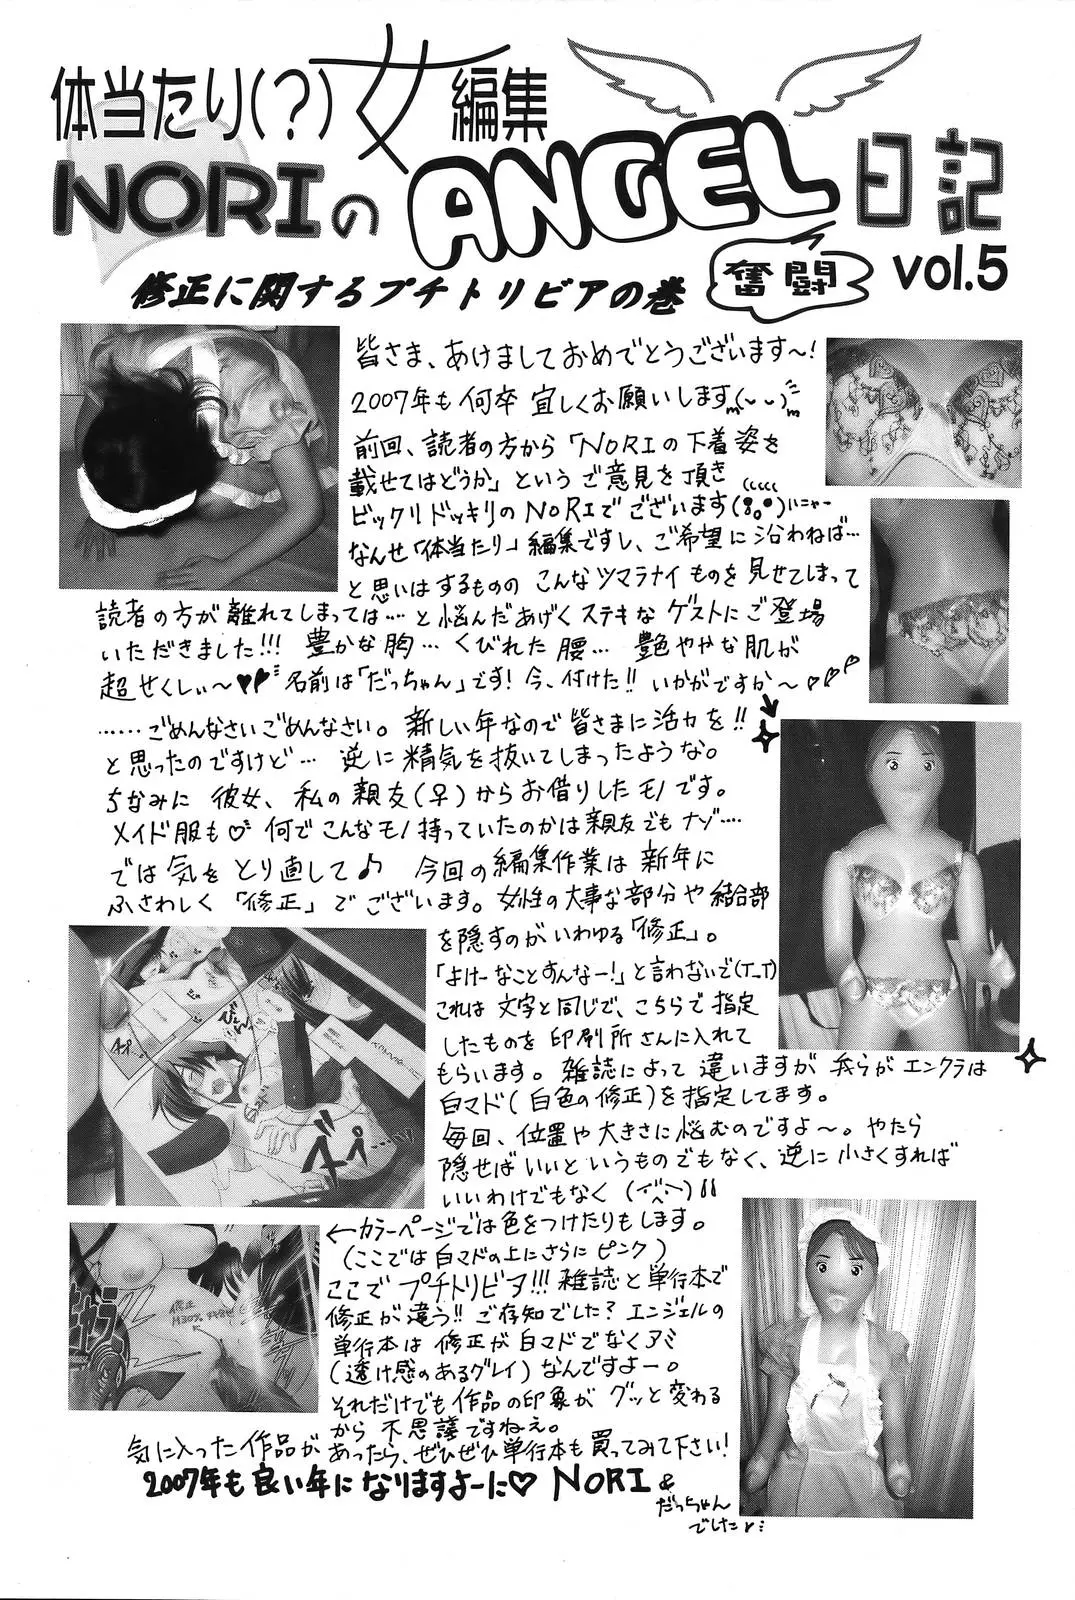 体当たり(?)女編集
NORIのANGEL日記
奮闘
vol.5
修正に関するプチトリビアの巻
皆さま、あけましておめでとうございます〜!
2007年も何卒宜しくお願いします
前回、読者の方から「NORIの下着姿を
載せてはどうか」というご意見を頂き
ビックリドッキリのNORIでございます
なんせ「体当たり」編集ですし、ご希望に沿わねば…
と思いはするものの こんなツマラナイものを見せてしまって
読者の方が離れてしまっては…と悩んだあげくステキなゲストにご登場
いただきました!!! 豊かな胸… くびれた腰… 艶やかな肌が
超せくしぃ〜♥♥ 名前は「だっちゃん」です!今、付けた!! いかがですか〜♥♥
……ごめんなさいごめんなさい。新しい年なので皆さまに活力を!!
と思ったのですけど… 逆に精気を抜いてしまったような。
ちなみに 彼女、私の親友(♀)からお借りしたモノです。
メイド服も♡ 何でこんなモノ持っていたのかは親友でもナゾ…
では気をとり直して♪ 今回の編集作業は新年に
ふさわしく「修正」でございます。女性の大事な部分や結合部
を隠すのがいわゆる「修正」。
「よけーなことすんなー!」と言わないで(T_T)
これは文字と同じで、こちらで指定
したものを印刷所さんに入れて
もらいます。雑誌によって違いますが我らがエンクラは
白マド(白色の修正)を指定してます。
毎回、位置や大きさに悩むのですよ〜。やたら
隠せばいいというものでもなく、逆に小さくすれば
いいわけでもなく
←カラーページでは色をつけたりもします。
(ここでは白マドの上にさらにピンク)
ここでプチトリビア!!! 雑誌と単行本で
修正が違う!! ご存知でした? エンジェルの
単行本は修正が白マドでなくアミ
(透け感のあるグレイ)なんですよー。
それだけでも作品の印象がグッと変わる
から不思議ですねえ。
気に入った作品があったら、ぜひぜひ単行本も買ってみて下さい!
2007年も良い年になりますよーに♡ NORI &
だっちゃん
でした
修正